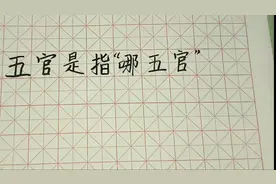 五官是指“哪五官”